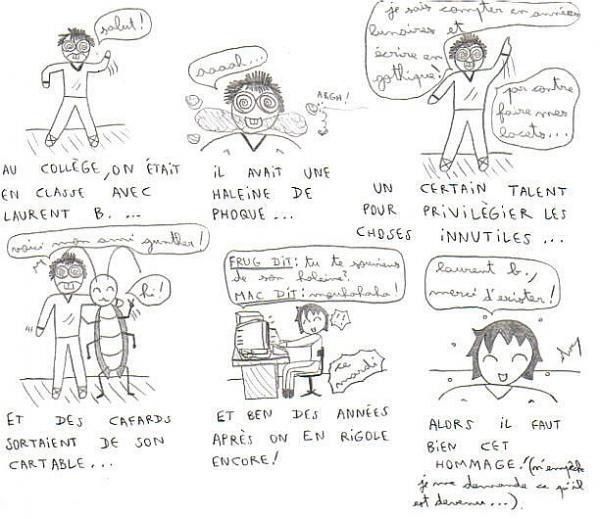 salut!
AU COLLÈGE, ON ÉTAIT
EN CLASSE AVEC
LAURENT B. ...
aaaah...
ARGH!
IL AVAIT UNE
HALEINE DE
PHOQUE...
je sais compter en années
lunaires et
écrire en
gothique!
par contre
faire mes
lacets...
UN CERTAIN TALENT
POUR PRIVILÈGIER LES
CHOSES INNUTILES...
voici mon ami gunther!
hi!
ET DES CAFARDS
SORTAIENT DE SON
CARTABLE...
FRUG DIT: tu te souviens
de son haleine?
MAC DIT: mouhahaha!
ce mardi
ET BEN DES ANNÉES
APRÈS ON EN RIGOLE
ENCORE!
laurent b.,
merci d'exister!
ALORS IL FAUT
BIEN CET
HOMMAGE! (n'empêche
je me demande ce qu'il
est devenu...).